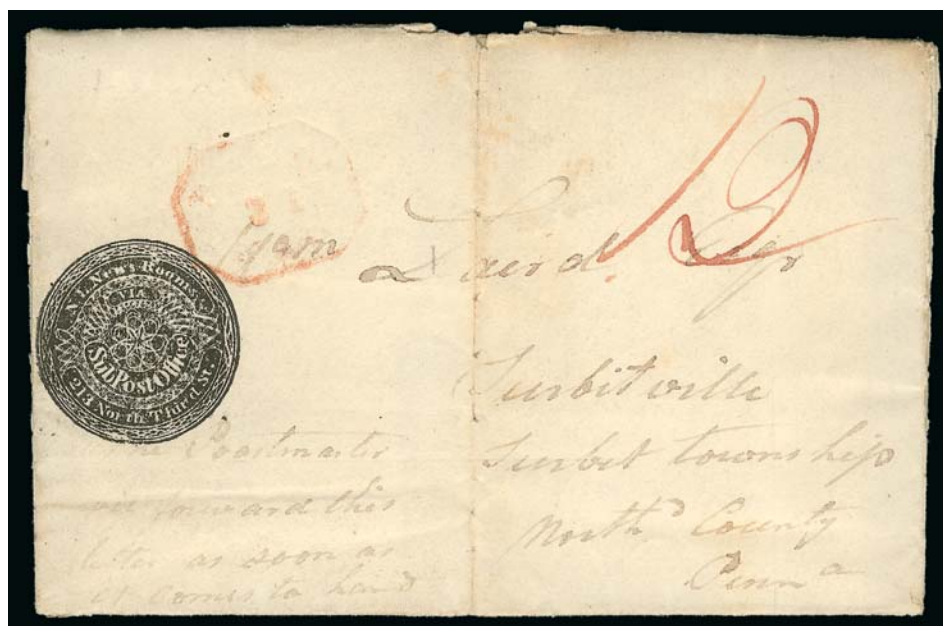 12
N. L. News Rooms
VIA
Sub Post Office
213 North Third St.
Laird Esqr
Turbitville
Turbet township
North^d County
Penn^a
Postmaster
forward this
letter as soon as
it comes to hand